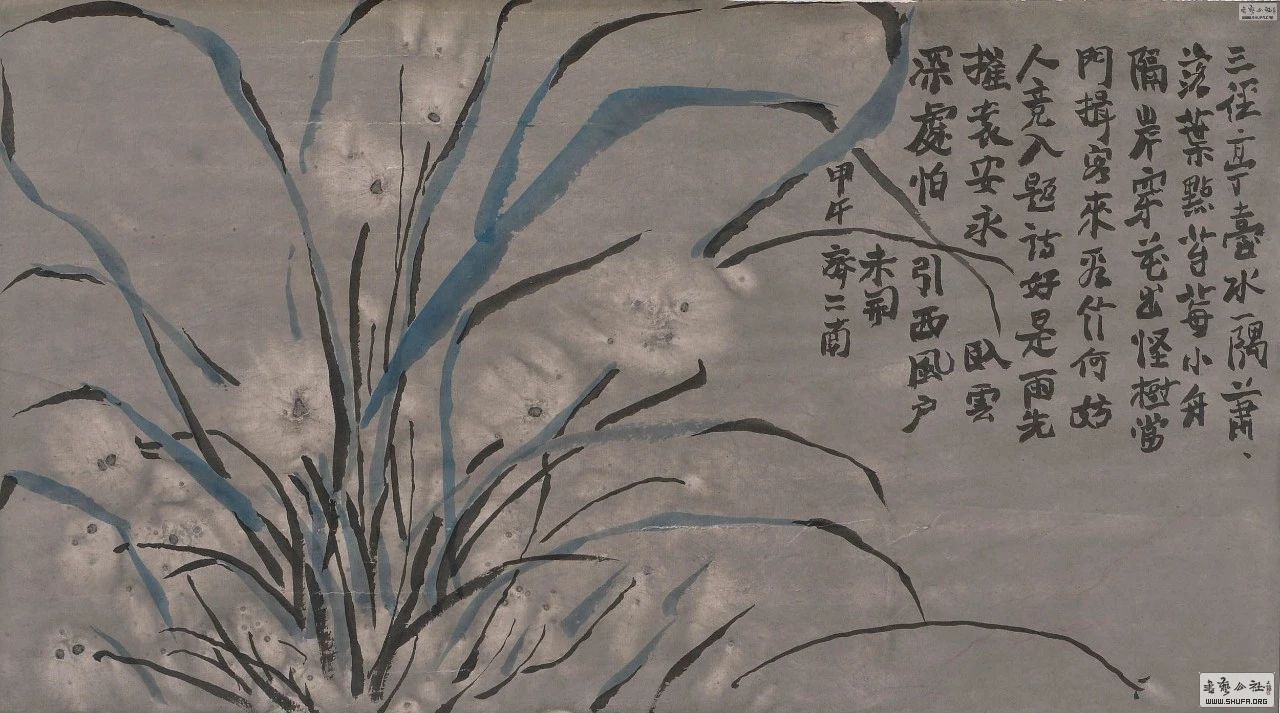 三徑亭臺水一隈蕭、
落葉點苔莓小舟
隔岸穿花出怪樹當
門揖客來看竹何妨
人竟入題詩好是雨先
摧袁安永臥雲
深處怕引西風户
未開
甲午
书艺公社
WWW.SHUFA.ORG